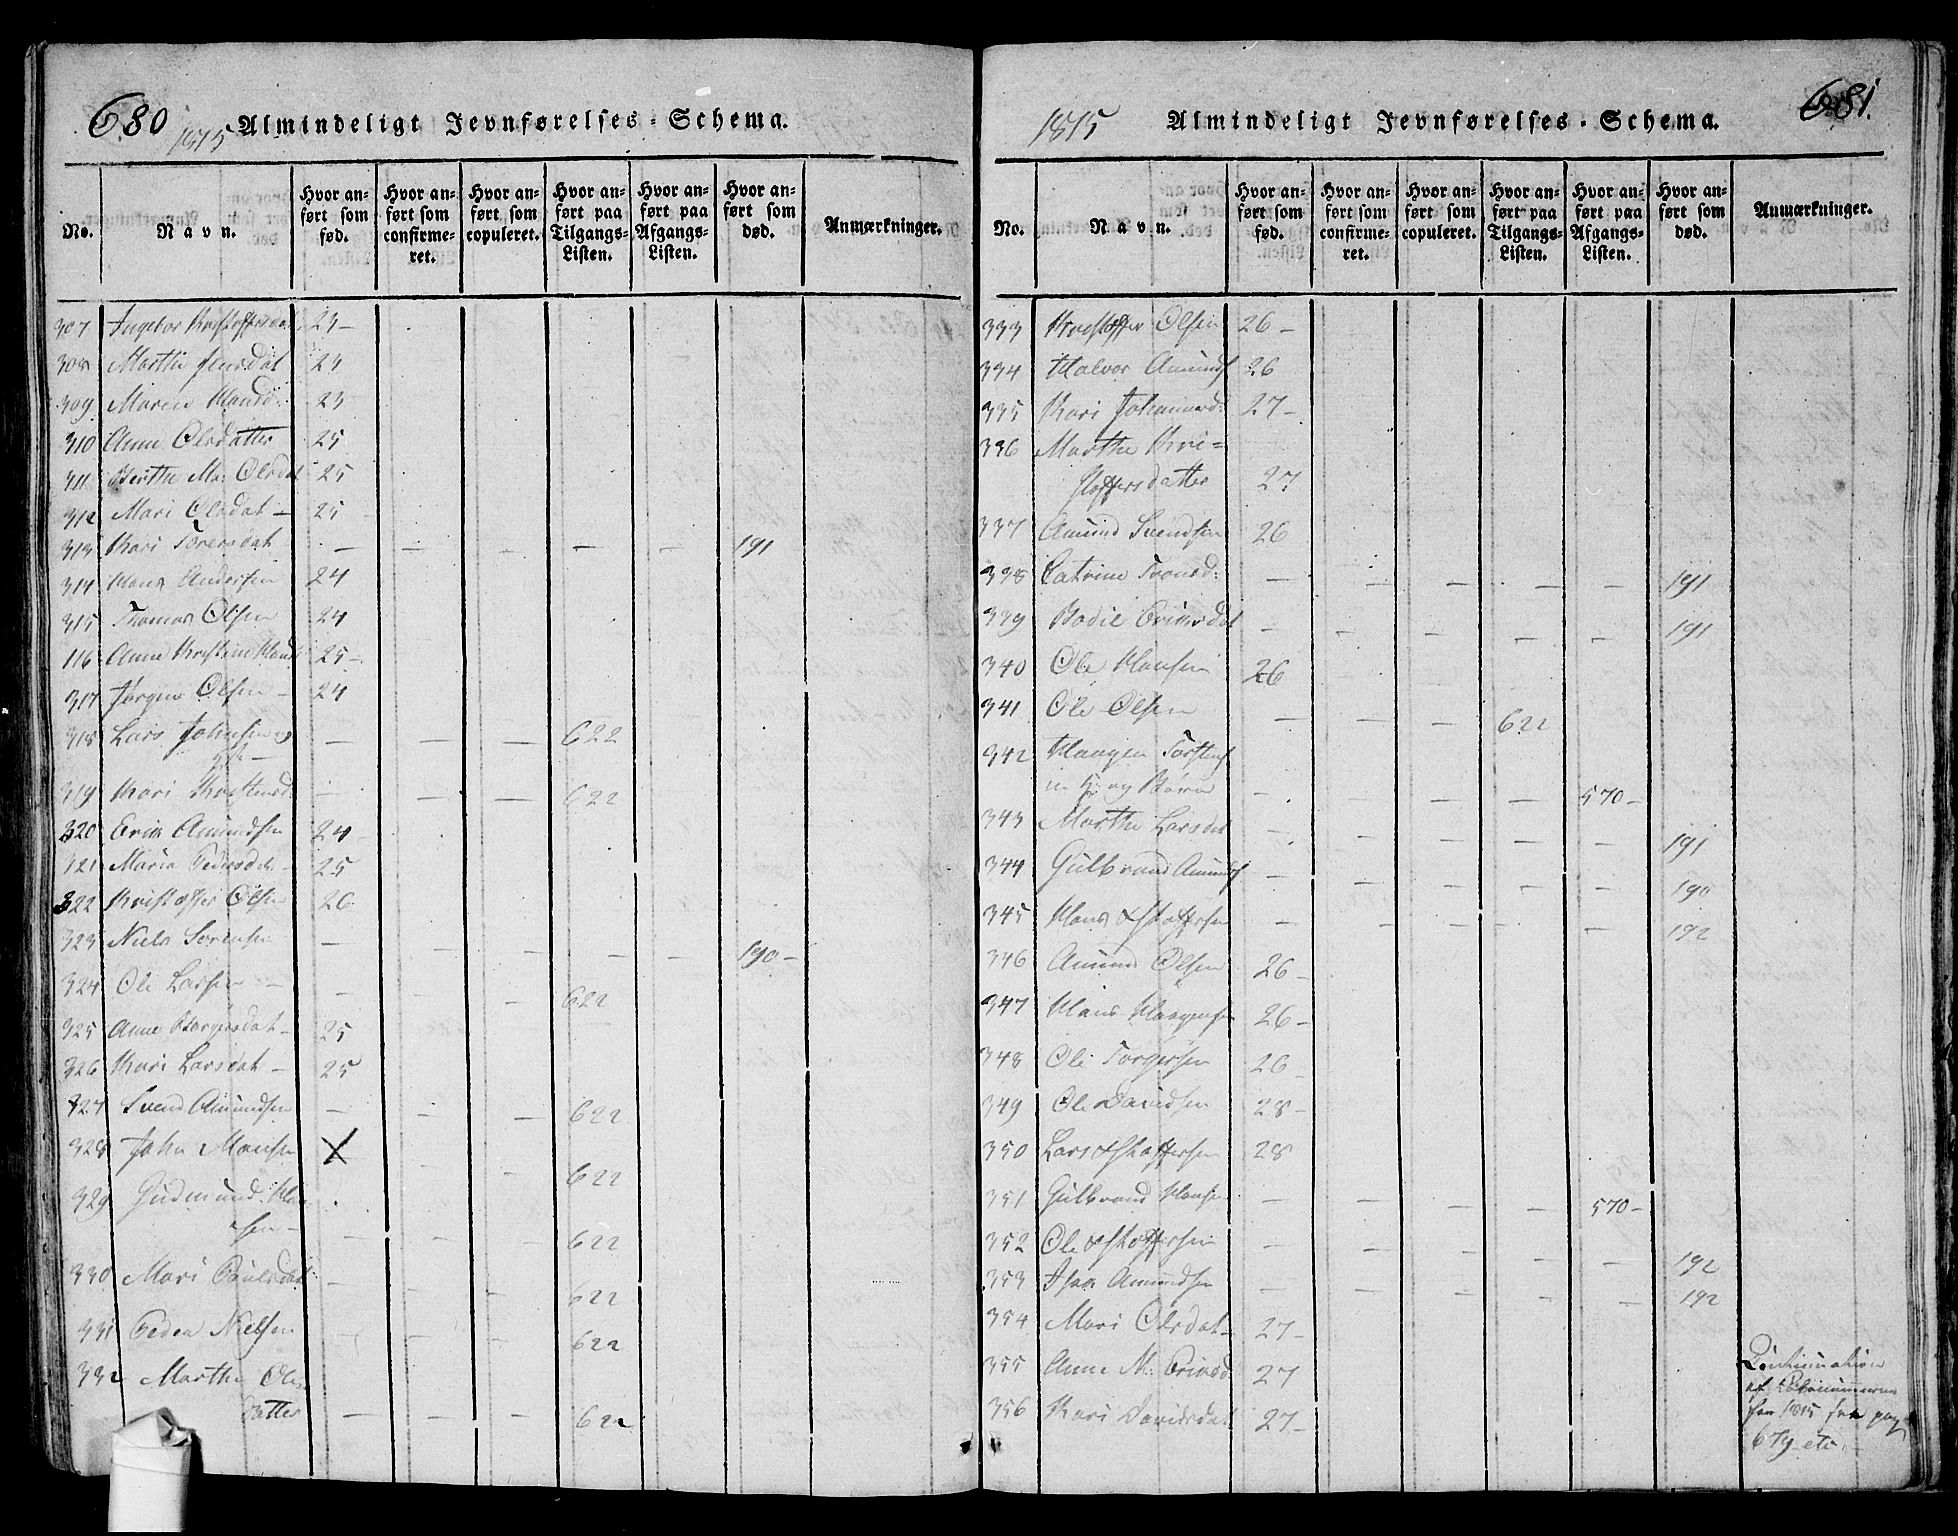 680
1815 Almindeligt Jevnførelses-Schema.
No.
Navn.
Hvor anført som fød.
Hvor anført som confirmeret.
Hvor anført som copuleret.
Hvor anført paa Tilgangs-Listen.
Hvor anført paa Afgangs-Listen.
Hvor anført som død.
Anmærkninger.
307 Ingebor 23 —
308 Marthe Jensdat 23
309 Maren Hansd: 23
310 Anne Olsdatter 25
311 Berthe Ma: Olsdat 25
312 Mari Olsdat — 25
313 Kari Torersdat — — — — — 191
314 Hans Andersen 24
315 Thomas Olsen 24
116 Anne Kristine Hansd 25 —
317 Jørgen Olsen — 24
318 Lars Johnsen og — — — 622
319 Kari — — — 622
320 Erik Amundsen 24 —
121 Maria Pedersdt — 25
322 Kristoffer Olsen 26
323 Niels Sørensen — — — — — 190 —
324 Ole Larsen — — — — 622
325 Anne Borgersdat — 25
326 Kari Larsdat — 25
327 Svend Amundsen — — — 622
328 John Mansen X — — 622
329 Gudmund Han
sen — — — — 622
330 Mari Poulsdat — — — 622
331 Peder Nielsen — — — 622
332 Marthe Ols
datter — — — 622
681.
1815 Almindeligt Jevnførelses-Schema.
No.
Navn.
Hvor anført som fød.
Hvor anført som confirmeret.
Hvor anført som copuleret.
Hvor anført paa Tilgangs-Listen.
Hvor anført paa Afgangs-Listen.
Hvor anført som død.
Anmærkninger.
333 Kristoffer Olsen 26 —
334 Halvor Amunds 26
335 Kari Johannesd: 27 —
336 Marthe Kri=
stoffersdatter 27
337 Amund Svendsen 26
338 Catrine Tronsd: — — — — — 191
339 Bodil Eriksdat — — — — — 191
340 Ole Hansen 26
341 Ole Olsen — — — 622
342 Haagen Torstens
m K: og Børn — — — — 570 —
343 Marthe Larsdat — — — — — 191
344 Gulbrand Amunds — — — — — 190
345 Hans Kristoffersen — — — — — 192
346 Amund Olsen 26 —
347 Hans Haagensen 26 —
348 Ole Torgersen 26 —
349 Ole Davidsen 28 —
350 Lars Kristoffersen 28
351 Gulbrand Hansen — — — — 570 —
352 Ole Kristoffersen — — — — — 192
353 Isak Amundsen — — — — — 192
354 Mari Olsdat — 27 —
355 Anne M: Eriksd 27
356 Kari Davidsdat 27 —
Continuation
af
for 1815 fra pag
679 etc. —